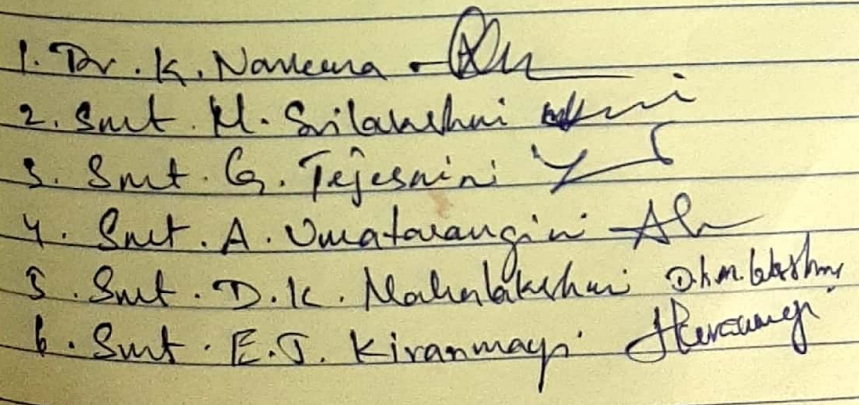 1. Dr. K. Naveena
2. Smt. M. Srilakshmi
3. Smt. G. Tejeswini
4. Smt. A. Umatarangini
5. Smt. D.K. Mahalakshmi D.k.m.lakshmi
6. Smt. E.J. Kiranmayi